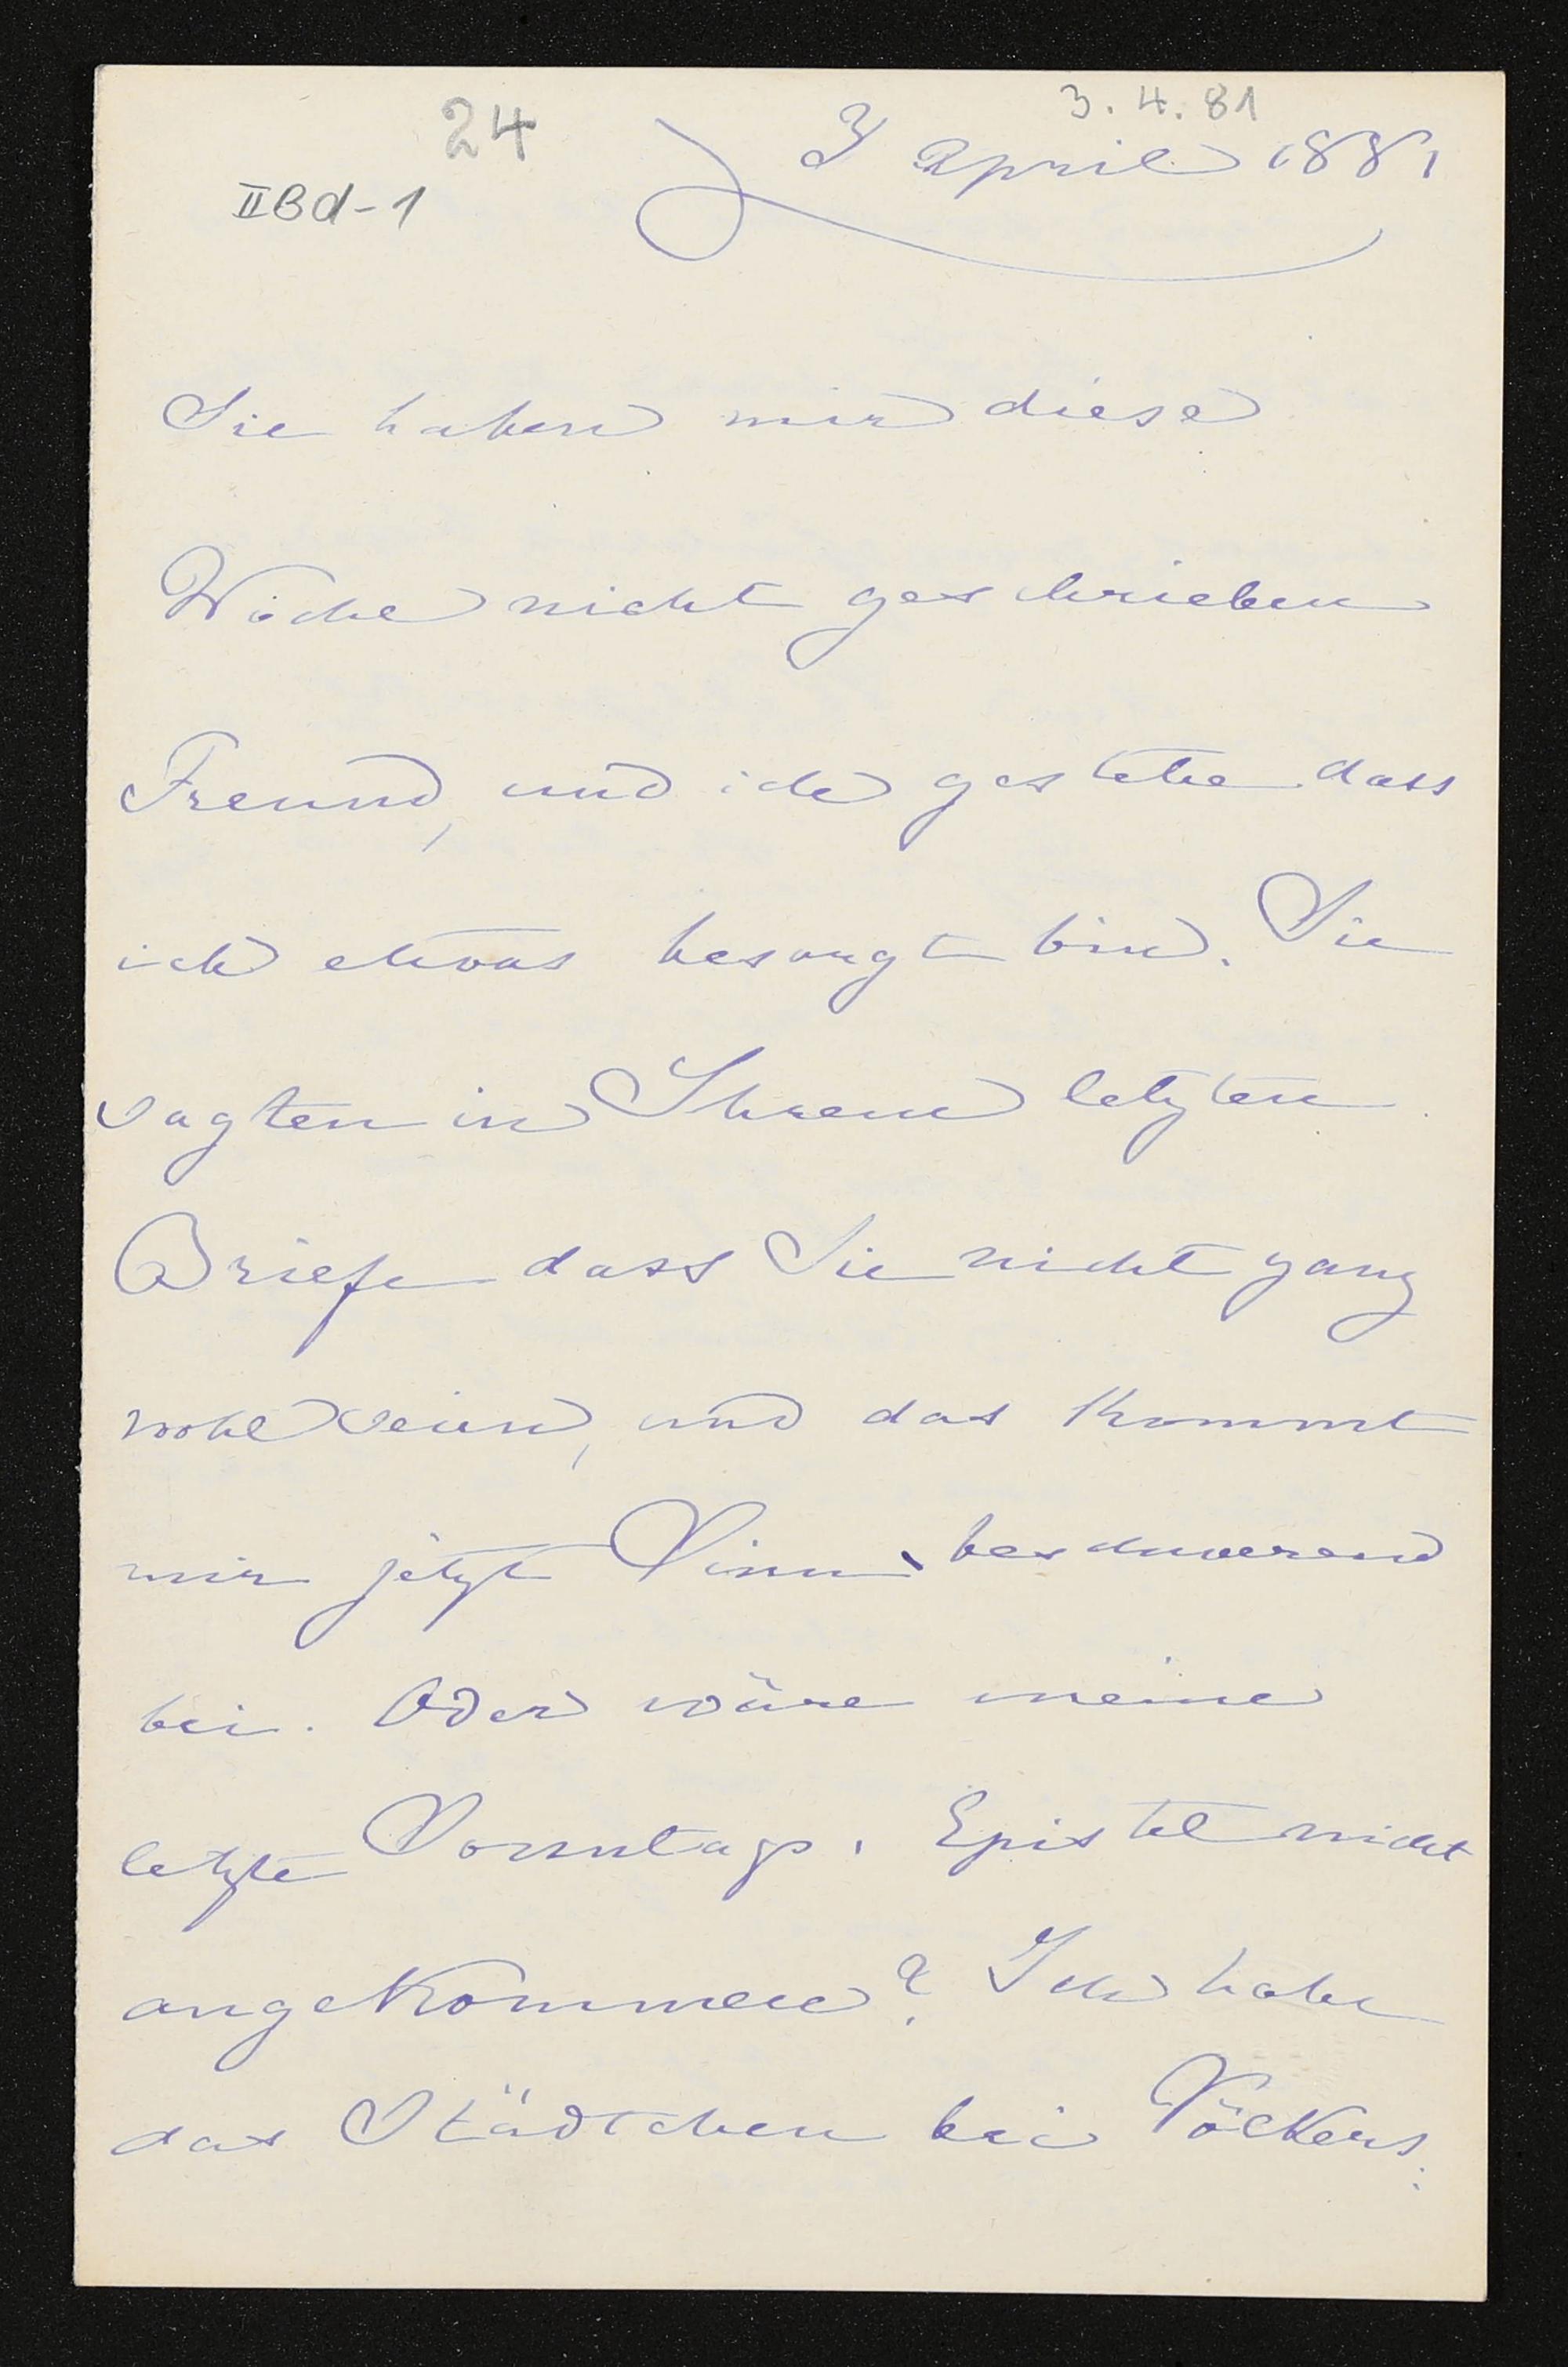 24
3.4.81
3 April 1881
II Bd-1
Sie haben mir diese
Woche nicht geschrieben
Freund, und ich gestehe dass
ich etwas besorgt bin. Sie
sagten in Ihrem letzten
Briefe dass Sie nicht ganz
wohl seien, und das kommt
mir jetzt Sinn beschwerend
bei. Oder wäre meine
letzte Sonntags-Epistel nicht
angekommen? Ich habe
das Städtchen bei Vöckers-